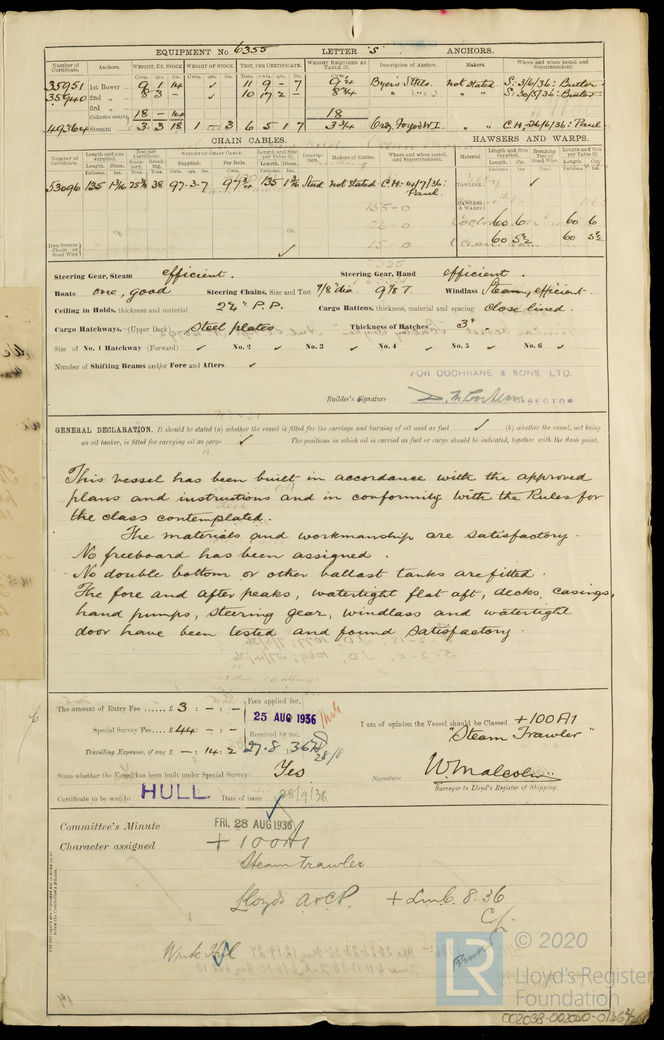 EQUIPMENT No 6355 LETTER 'S' ANCHORS.
Number of Certificate. Anchors. WEIGHT, EX. STOCK WEIGHT OF STOCK TEST, PER CERTIFICATE. WEIGHT REQUIRED BY TABLE 31. Description of Anchor. Makers. Where and when tested and Superintendent.
35951 1st Bower 9 1 14 ✓ 11 9 - 7 9¼ Byers Stkls. not stated S: 3/6/36: Butler
35940 2nd „ 8 3 - ✓ 10 7 2 - 8¾ „ „ „ S: 30/5/36: Butler
3rd „
Collective weight 18 - 14 18
49364 Stream 3 3 18 1 - 3 6 5 1 7 3¾ Ordy. Forged W.I. „ „ C.H, 26/6/36: Paul
CHAIN CABLES. HAWSERS AND WARPS.
53096 135 1 3/16 25 3/8 38 97.3.7 97¾ 135 1 3/16 Stud not stated C.H. 4/7/36: Paul.
TOWLINE ✓
HAWSERS & WARPS
60 6 60 6
60 5½ 60 5½
Steering Gear, Steam efficient. Steering Gear, Hand efficient.
Boats one, good Steering Chains, Size and Test 7/8" dia 9 1/8 T. Windlass Steam, efficient.
Ceiling in Holds, thickness and material 2¼" P.P. Cargo Battens, thickness, material and spacing Close lined.
Cargo Hatchways. (Upper Deck) Steel plates Thickness of Hatches 3"
Size of No. 1 Hatchway (Forward) ✓ No. 2 ✓ No. 3 ✓ No. 4 ✓ No. 5 ✓ No. 6 ✓
Number of Shifting Beams and/or Fore and Afters ✓
FOR COCHRANE & SONS. LTD.
Builder's Signature DIRECTOR
GENERAL DECLARATION. It should be stated (a) whether the vessel is fitted for the carriage and burning of oil used as fuel ✓ (b) whether the vessel, not being
an oil tanker, is fitted for carrying oil as cargo ✓ The positions in which oil is carried as fuel or cargo should be indicated, together with the flash point,
This vessel has been built in accordance with the approved
plans and instructions and in conformity with the Rules for
the class contemplated.
The materials and workmanship are satisfactory.
No freeboard has been assigned.
No double bottom or other ballast tanks are fitted.
The fore and after peaks, watertight flat aft, decks, casings,
hand pumps, steering gear, windlass and watertight
door have been tested and found satisfactory.
The amount of Entry Fee ...... £ 3 : - : - Fees applied for,
25 AUG 1936
Special Survey Fee .... £ 44 : - : - Received by me,
Travelling Expenses, if any £ - : 14 : 2 27.8.36
28/8
I am of opinion the Vessel should be Classed +100A1
"Steam Trawler"
State whether the Vessel has been built under Special Survey Yes
Signature W. Malcolm
Surveyor to Lloyd's Register of Shipping.
Certificate to be sent to HULL. Date of issue 28/9/36
Committee's Minute FRI. 28 AUG 1936
Character assigned + 100A1
Steam Trawler
Lloyd's A & CP. + LMC. 8.36
C.L.
Write Hull
© 2020
Lloyd's Register
Foundation
002038-002040-0146 2/2